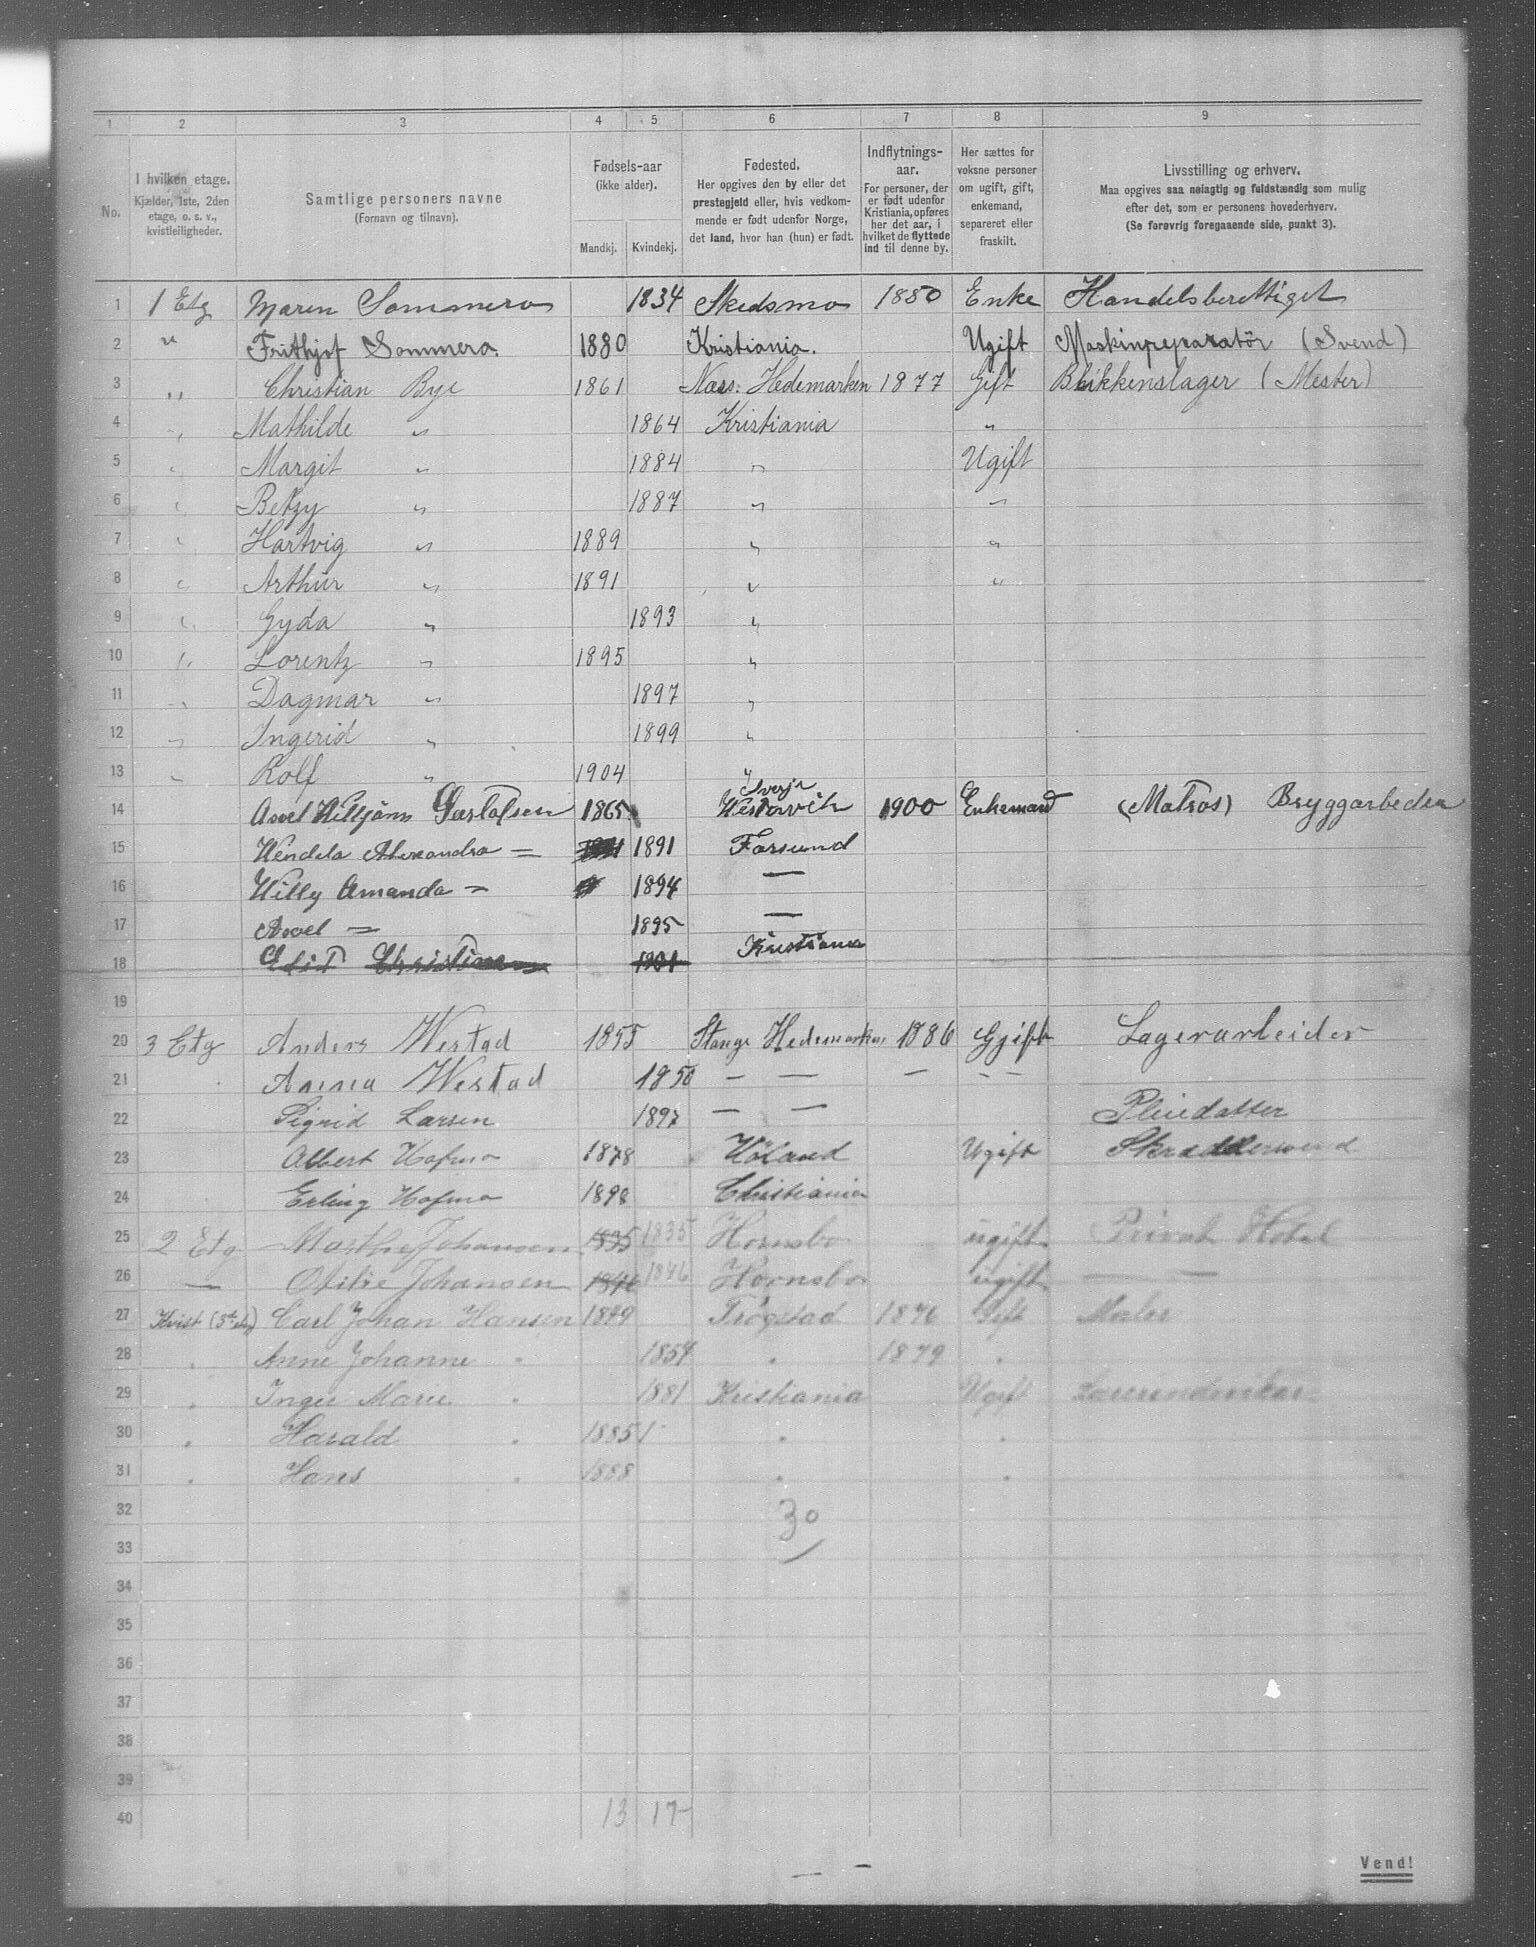 1 2 3 4 5 6 7 8 9
No.
I hvilken etage.
Kjælder, 1ste, 2den
etage, o. s. v.,
kvistleiligheder.
Samtlige personers navne
(Fornavn og tilnavn).
Fødsels-aar
(ikke alder).
Mandkj. Kvindekj.
Fødested.
Her opgives den by eller det
prestegjeld eller, hvis vedkom-
mende er født udenfor Norge,
det land, hvor han (hun) er født.
Indflytnings-
aar.
For personer, der
er født udenfor
Kristiania, opføres
her det aar, i
hvilket de flyttede
ind til denne by.
Her sættes for
voksne personer
om ugift, gift,
enkemand,
separeret eller
fraskilt.
Livsstilling og erhverv.
Maa opgives saa nøiagtig og fuldstændig som mulig
efter det, som er personens hovederhverv.
(Se forøvrig foregaaende side, punkt 3).
1 1 Etg Maren Sommero 1834 Skedsmo 1850 Enke Handelsberettiget
2 " Frithjof Sommero. 1880 Kristiania. Ugift Maskinreparatör (Svend)
3 " Christian Bye 1861 Næs. Hedemarken 1877 Gift Blikkenslager (Mester)
4 " Mathilde " 1864 Kristiania "
5 " Margit " 1884 " Ugift
6 " Betzy " 1887 " "
7 " Hartvig " 1889 " "
8 " Arthur " 1891 " "
9 " Gyda " 1893 "
10 " Lorentz " 1895 "
11 " Dagmar " 1897 "
12 " Ingerid " 1899 "
13 " Rolf " 1904 "
14 Axel 1865 Westervik 1900 Enkemand (Matros) Bryggarbeder
15 Wendela Alexandra = 1891 Farsund
16 Willy Amanda = 1894 —
17 Axel = 1895 —
18 Edit Christine 1901 Kristiania
19
20 3 Etg Anders Westad 1855 Stange Hedemarken 1886 Gjift Lagerarbeider
21 Anna Westad 1850 — — — — —
22 Sigrid Larsen 1897 — — Pleiedatter
23 Albert Hofmo 1878 Höland Ugift Skräddersvend
24 Erling Hofmo 1898 Christiania
25 2 Etg Marthe Johansen 1835 1835 Hornsbo ugift Privat Hotel
26 — Otilie Johansen 1846 1846 Hornsbo ugift — —
27 Kvist (5te etg) Carl Johan Hansen 1849 Trögstad 1876 Gift Maler
28 " Anne Johanne " 1854 " 1879 "
29 " Inger Marie " 1881 Kristiania Ugift
30 " Harald " 1885 " "
31 " Hans " 1888 " "
32 30
33
34
35
36
37
38
39
40 13 17
Vend!